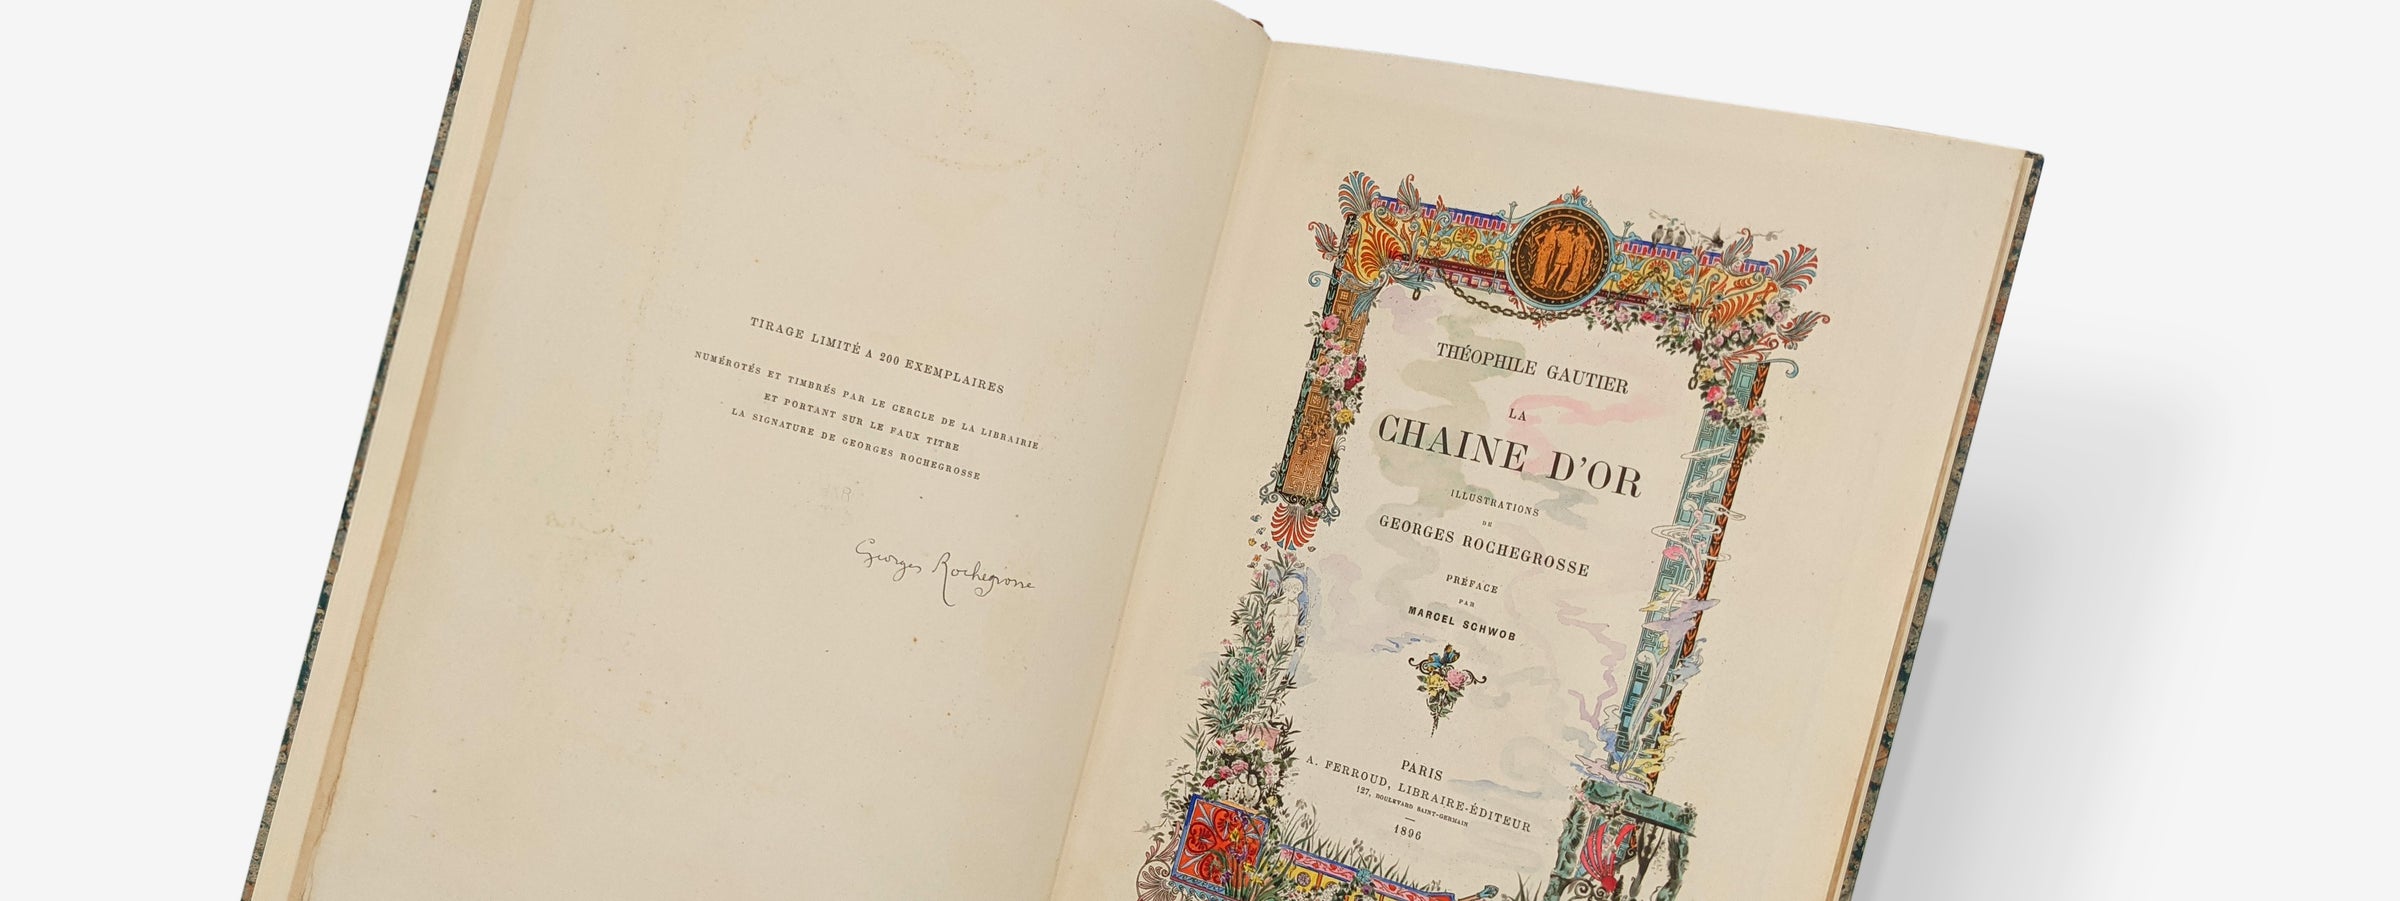 TIRAGE LIMITÉ A 200 EXEMPLAIRES
NUMÉROTÉS ET TIMBRÉS PAR LE CERCLE DE LA LIBRAIRIE
ET PORTANT SUR LE FAUX TITRE
LA SIGNATURE DE GEORGES ROCHEGROSSE
Georges Rochegrosse
THÉOPHILE GAUTIER
LA
CHAINE D'OR
ILLUSTRATIONS
DE
GEORGES ROCHEGROSSE
PRÉFACE
PAR
MARCEL SCHWOB
PARIS
A. FERROUD, LIBRAIRE-ÉDITEUR
127, BOULEVARD SAINT-GERMAIN
1896